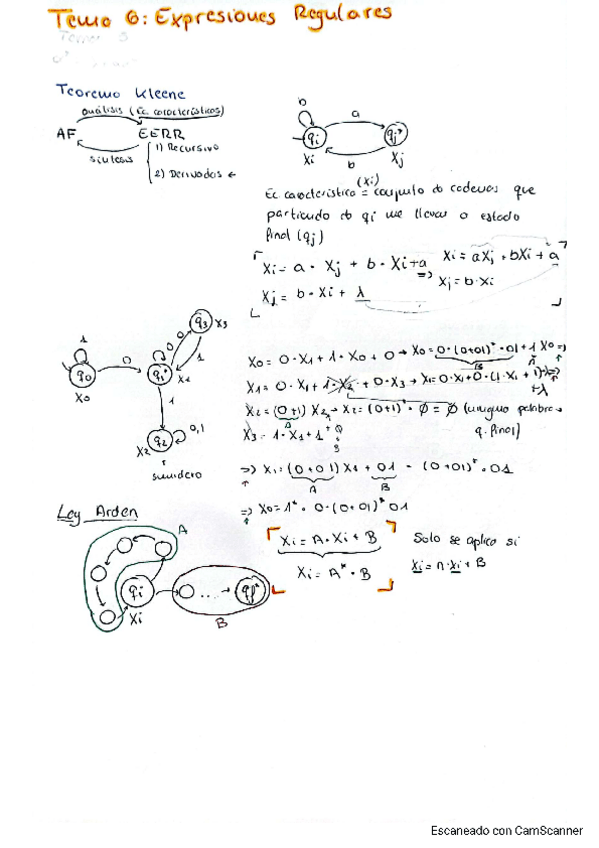 Tema 6: Expresiones Regulares
Teorema Kleene
análisis (Ec. características)
AF EERR
síntesis
1) Recursivo
2) Derivadas ←
b
a
qi qj*
Xi b Xj
(xi)
Ec característica = conjunto de cadenas que
partiendo de qi me llevan a estado
final (qj)
Xi = a · Xj + b · Xi + a
Xi = aXj + bXi + a
=>
Xj = b · Xi + λ
Xj = b · xi
1
q0 0 q1* 0 q3 X3
0
1
X0 X1
1
X2 q2 0,1
↑
sumidero
X0 = 0 · X1 + 1 · X0 + 0 → X0 = 0 · (0+01)* · 01 + 1 X0 =>
B
X1 = 0 · X1 + 1 · X2 + 0 · X3 → X1 = 0 · X1 + 0 · (1 · X1 + 1) =>
+λ
X2 = (0+1) X2 → X2 = (0+1)* · Ø = Ø (ninguna palabra →
A
q. final)
X3 = 1 · X1 + 1 + Ø
B
=> X1 = (0+01) X1 + 01 = (0+01)* · 01
A B
=> X0 = 1* · 0 · (0+01)* 01
Ley Arden
A
Xi = A · Xi + B
Xi = A* · B
Solo se aplica si
Xi = A · Xi + B
qi
Xi
... qf*
B
Escaneado con CamScanner